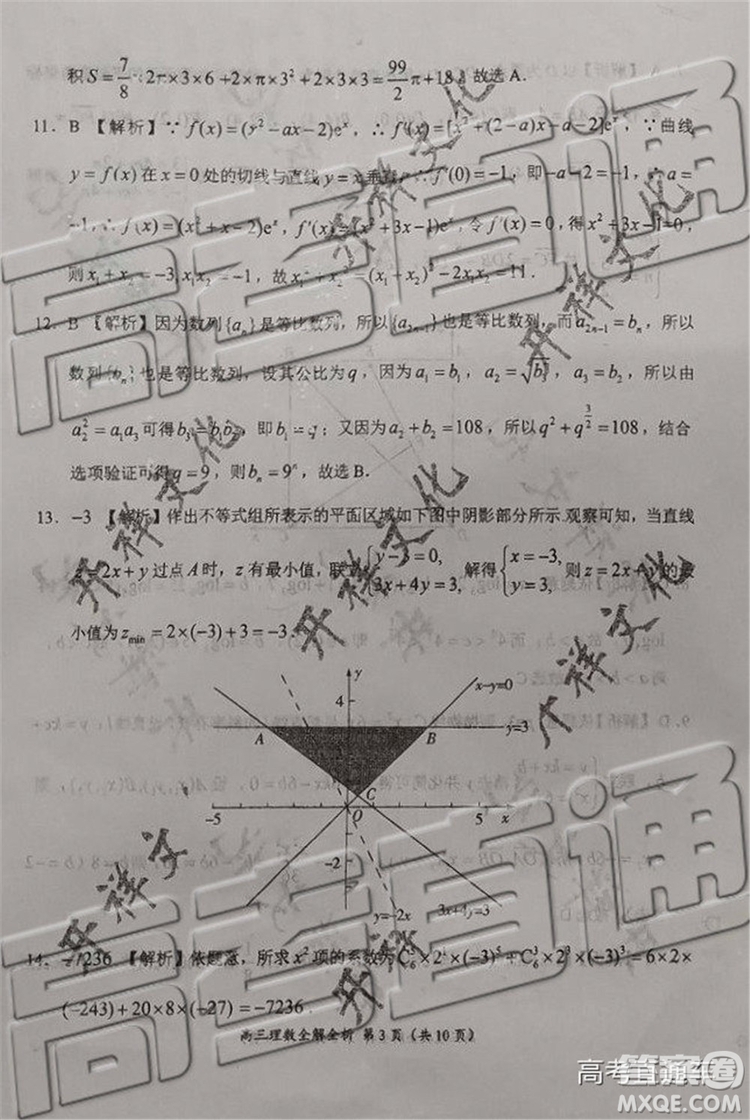 积S=7/8·2π×3×6+2×π×3²+2×3×3=99/2π+18，故选 A．
11．B 【解析】∵f(x)=(x²-ax-2)eˣ，∴f'(x)=[x²+(2-a)x-a-2]eˣ，∵曲线
y=f(x)在x=0处的切线与直线y=x垂直，∴f'(0)=-1，即-a-2=-1，∴a=
-1，∴f(x)=(x²+x-2)eˣ，f'(x)=(x²+3x-1)eˣ，令f'(x)=0，得x²+3x-1=0，
则x₁+x₂=-3,x₁x₂=-1，故x₁²+x₂²=(x₁+x₂)²-2x₁x₂=11．
12．B 【解析】因为数列{aₙ}是等比数列，所以{a₂ₙ₋₁}也是等比数列，而a₂ₙ₋₁=bₙ，所以
数列{bₙ}也是等比数列，设其公比为q，因为a₁=b₁，a₂=√b₃，a₃=b₂，所以由
a₂²=a₁a₃可得b₃=b₁b₂，即b₁=q；又因为a₂+b₂=108，所以q²+q^(3/2)=108，结合
选项验证可得q=9，则bₙ=9ⁿ，故选 B．
13．-3 【解析】作出不等式组所表示的平面区域如下图中阴影部分所示.观察可知，当直线
z=2x+y过点A时，z有最小值，联立{y-3=0, 3x+4y=3, 解得{x=-3, y=3, 则z=2x+y的最
小值为z_min=2×(-3)+3=-3．
y
4
x-y=0
A
B
y=3
C
-5
O
5
x
-2
y=-2x
3x+4y=3
14．-7236 【解析】依题意，所求x²项的系数为C₆⁵×2¹×(-3)⁵+C₆³×2³×(-3)³=6×2×
(-243)+20×8×(-27)=-7236．
高三理数全解全析 第3页（共10页）
高考直通车
开祥文化
答案圈
MXQE.COM